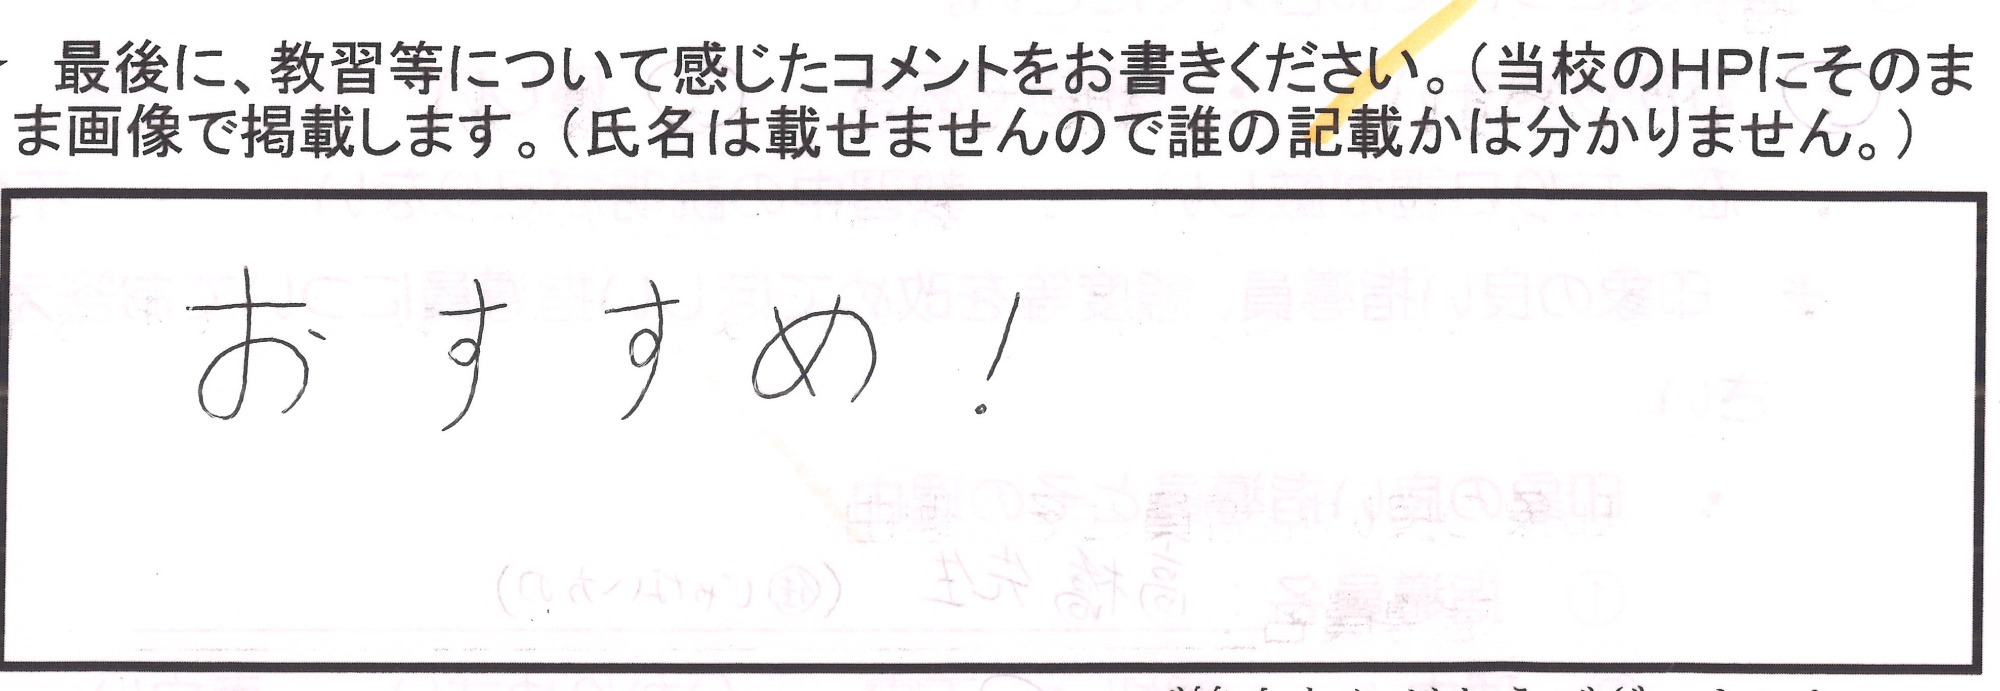 最後に、教習等について感じたコメントをお書きください。（当校のHPにそのまま
ま画像で掲載します。（氏名は載せませんので誰の記載かは分かりません。）
おすすめ！